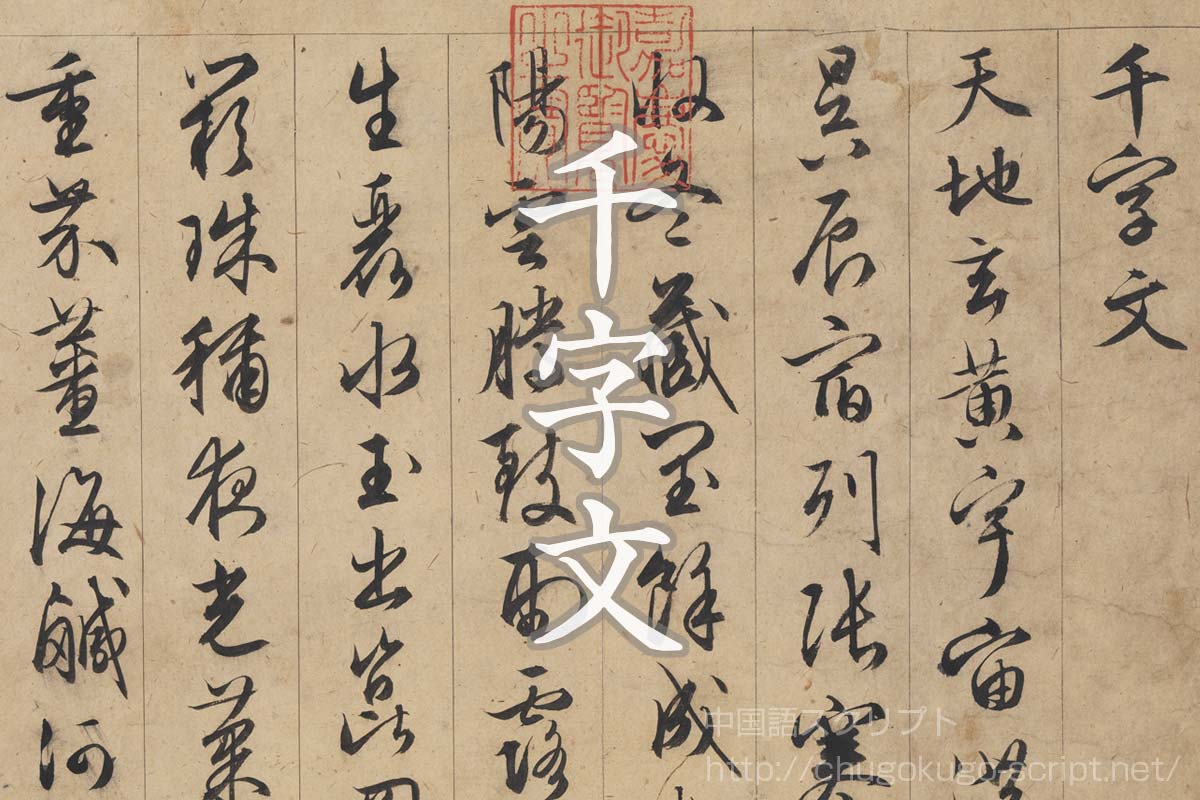 千字文
天地玄黄宇宙
昃辰宿列張寒
收冬藏閏餘成
陽雲騰致雨露
生麗水玉出崑
闕珠稱夜光菓
重芥薑海鹹河
千字文
中国語スクリプト
http://chugokugo-script.net/